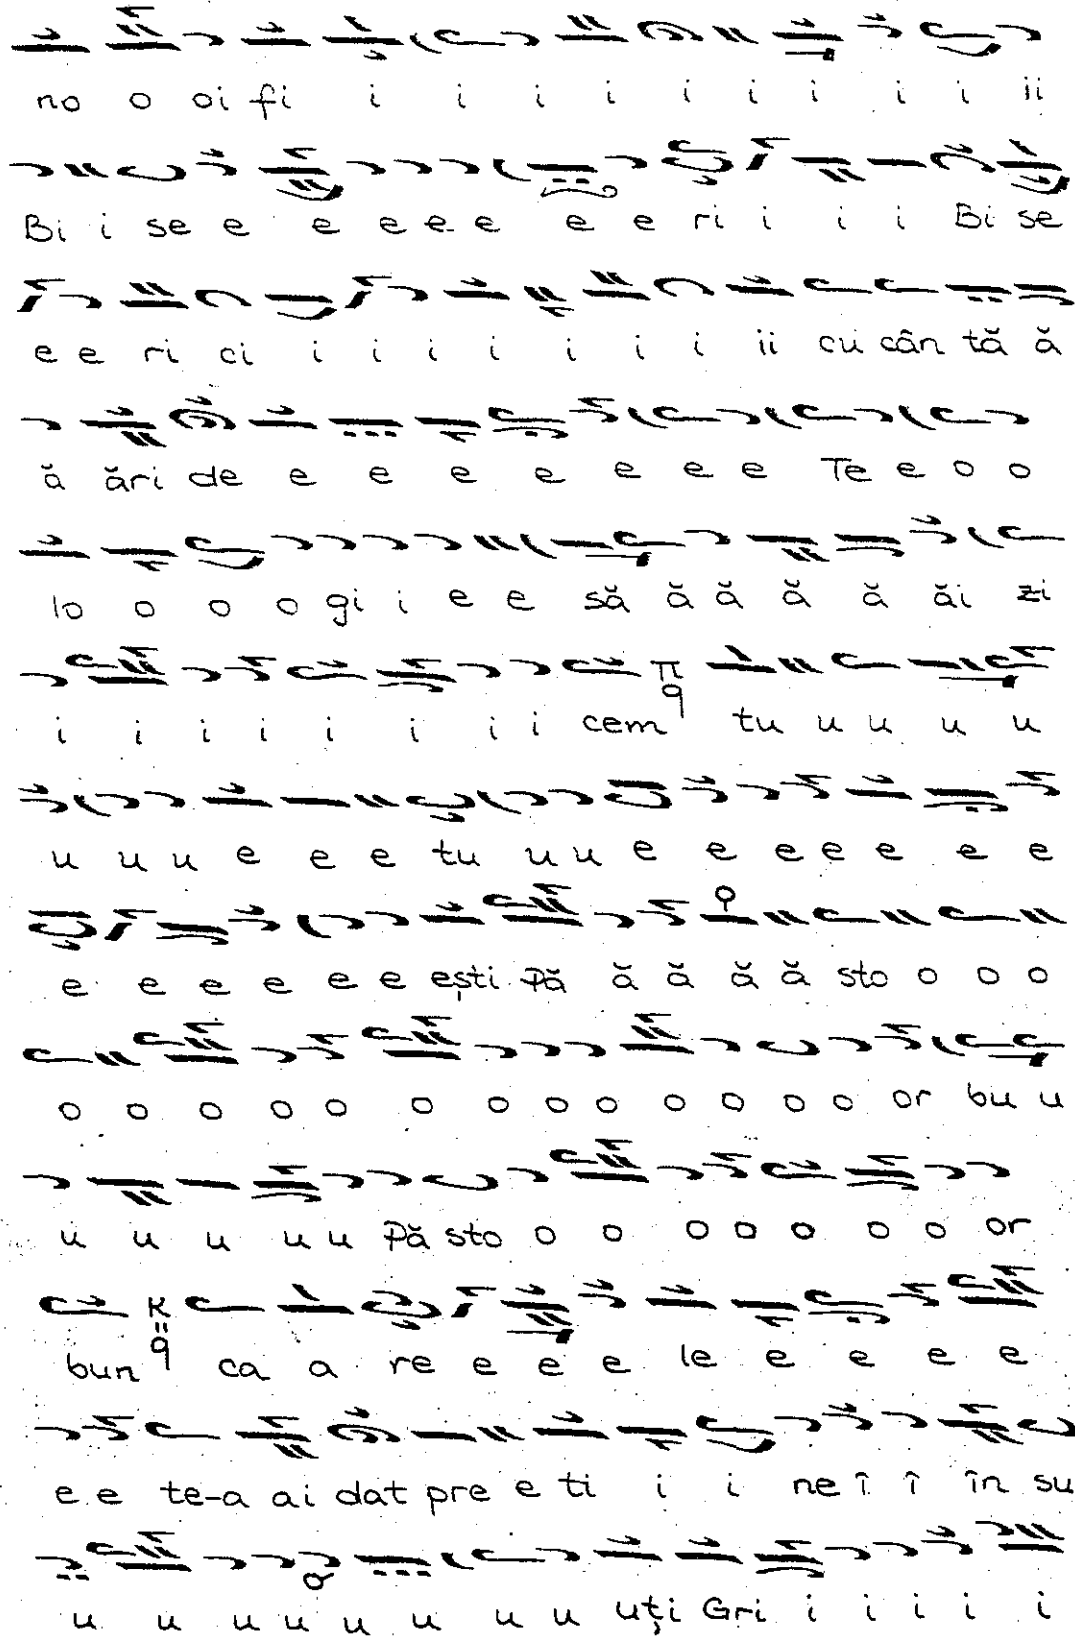 no o oi fi i i i i i i i i i ii
Bi i se e e e e e e e ri i i i Bi se
e e ri ci i i i i i i i ii cu cân tă ă
ă ări de e e e e e e e Te e o o
lo o o o gi i e e să ă ă ă ă ăi zi
i i i i i i i i cem π q tu u u u u
u u u e e e tu u u e e e e e e e
e e e e e e ești Pă ă ă ă ă sto o o o
o o o o o o o o o o o o o or bu u
u u u u u Pă sto o o o o o o o or
bun κ q ca a re e e e le e e e e
e e te-a ai dat pre e ti i i ne î î în su
u u u u u u u u uți Gri i i i i i